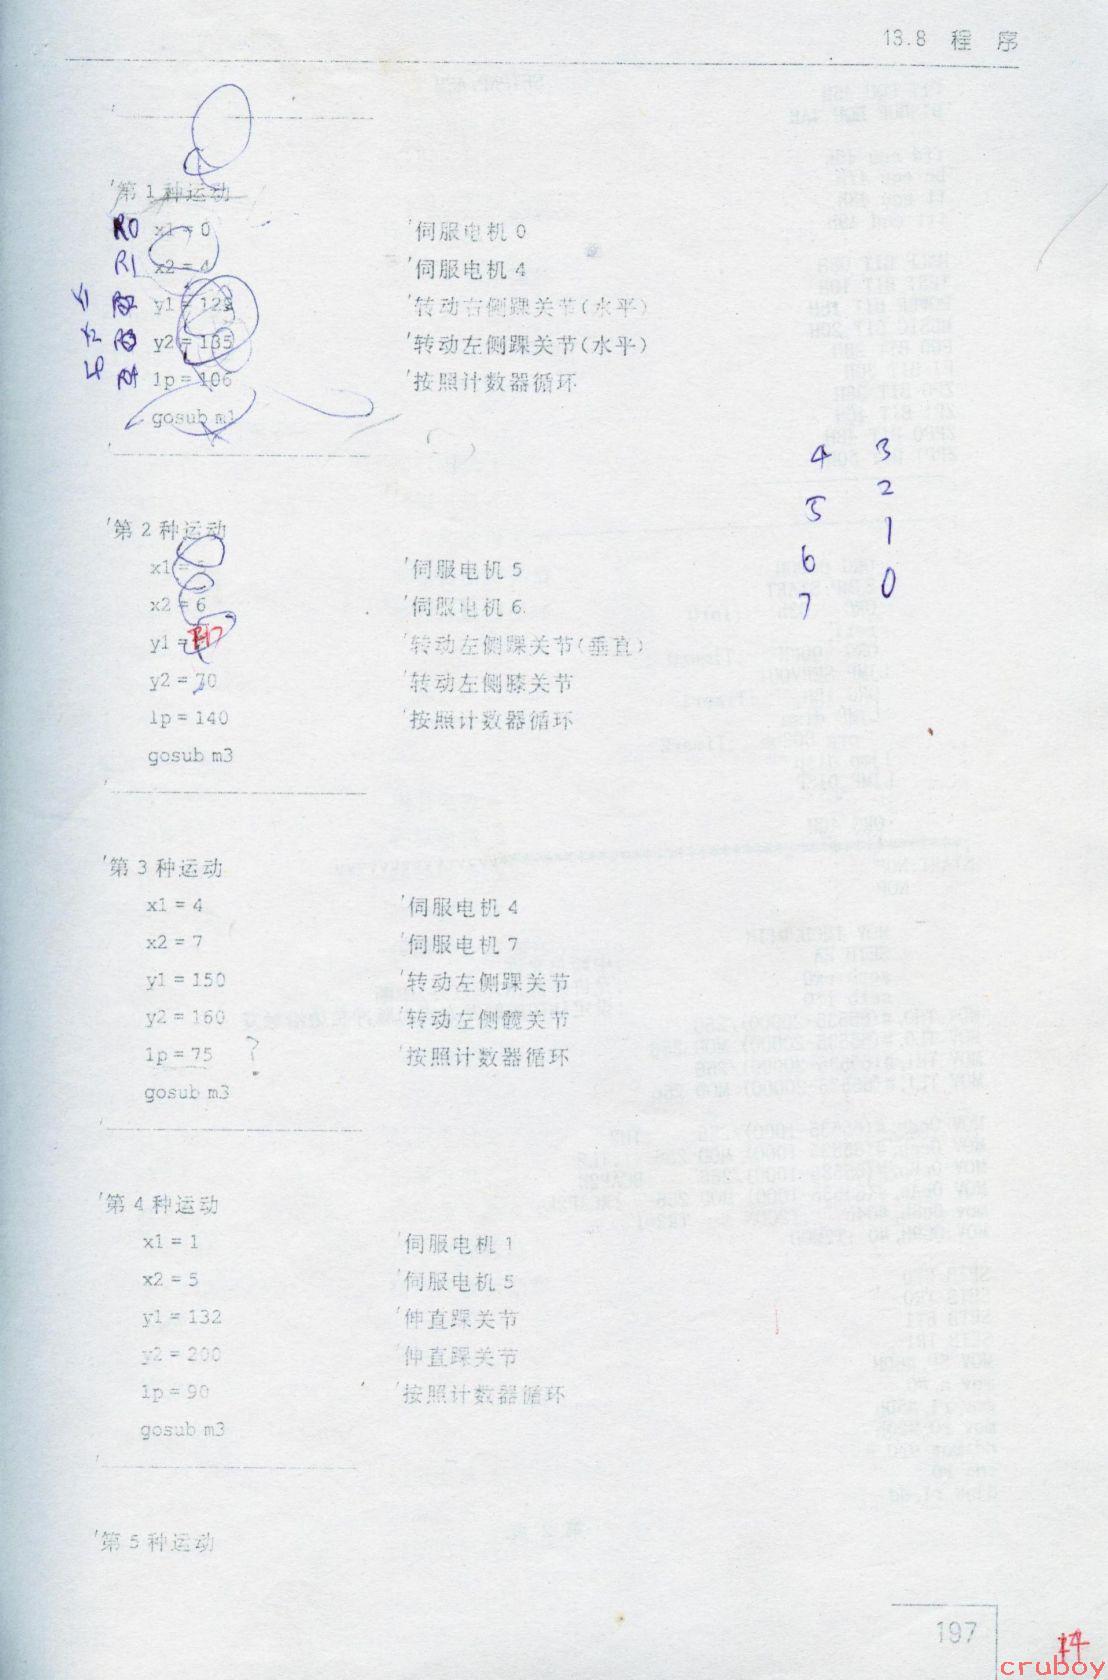 13.8 程 序
'第 1 种运动
R0 x1 = 0 '伺服电机 0
R1 x2 = 4 '伺服电机 4
y1 = 122 '转动右侧踝关节(水平)
x2 y2 = 135 '转动左侧踝关节(水平)
R4 lp = 106 '按照计数器循环
gosub m1
4 3
5 2
6 1
7 0
'第 2 种运动
x1 = '伺服电机 5
x2 = 6 '伺服电机 6
y1 = '转动左侧踝关节(垂直)
y2 = 70 '转动左侧膝关节
lp = 140 '按照计数器循环
gosub m3
'第 3 种运动
x1 = 4 '伺服电机 4
x2 = 7 '伺服电机 7
y1 = 150 '转动左侧踝关节
y2 = 160 '转动左侧髋关节
lp = 75 ? '按照计数器循环
gosub m3
'第 4 种运动
x1 = 1 '伺服电机 1
x2 = 5 '伺服电机 5
y1 = 132 '伸直踝关节
y2 = 200 '伸直踝关节
lp = 90 '按照计数器循环
gosub m3
'第 5 种运动
197
14
cruboy